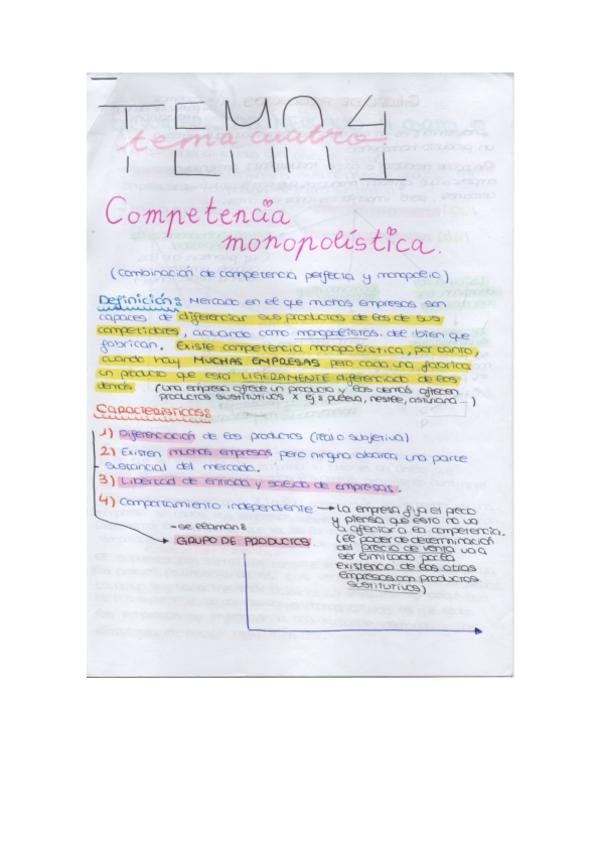 TEMA 4
tema cuatro
Competencia
monopolística.
(combinación de competencia perfecta y monopolio)
Definición: Mercado en el que muchas empresas son
capaces de diferenciar sus productos de los de sus
competidores, actuando como monopolistas del bien que
fabrican. Existe competencia monopolística, por tanto,
cuando hay MUCHAS EMPRESAS pero cada una fabrica
un producto que está LIGERAMENTE diferenciado de los
demás. (una empresa ofrece un producto y los demás ofrecen
productos sustitutivos x ej: puleva, nestlé, asturiana...)
Características:
1) Diferenciación de los productos (real o subjetiva)
2) Existen muchas empresas pero ninguna abarca una parte
sustancial del mercado.
3) Libertad de entrada y salida de empresas.
4) Comportamiento independiente → La empresa fija el precio
y piensa que esto no va
a afectar a la competencia.
(El poder de determinación
del precio de venta va a
ser limitado por la
existencia de las otras
empresas con productos
sustitutivos)
- se llaman:
GRUPO DE PRODUCTOS